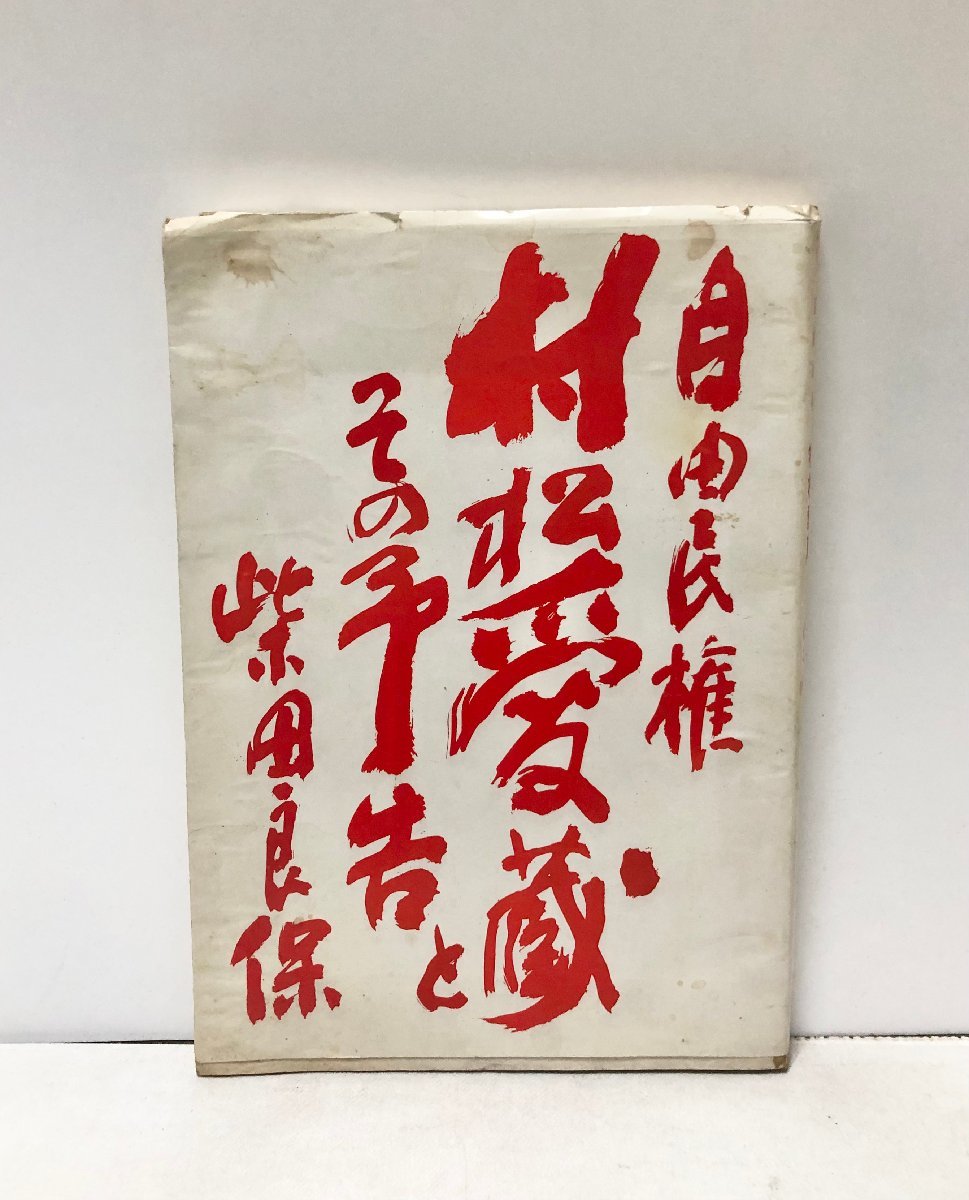 自由民権
村松愛蔵と
その予告
柴田良保